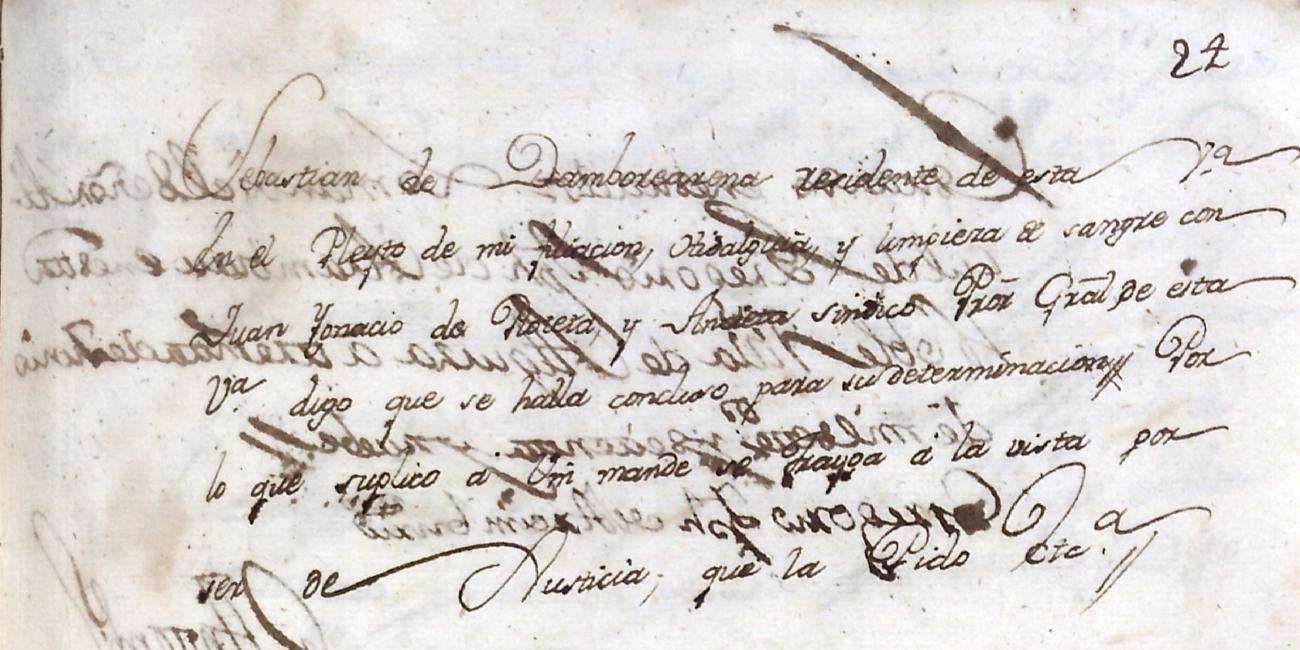 24
Sebastian de Damborearena residente de esta Vª
En el Pleyto de mi filiacion, Hidalguia, y limpieza de sangre con
Juan Ygnacio de y Andicta sindico Pror Gral de esta
Vª digo que se halla concluso para su determinacion Por
lo que suplico a Vm mande se trayga a la vista por
ser de Justicia, que la Pido etc.ª